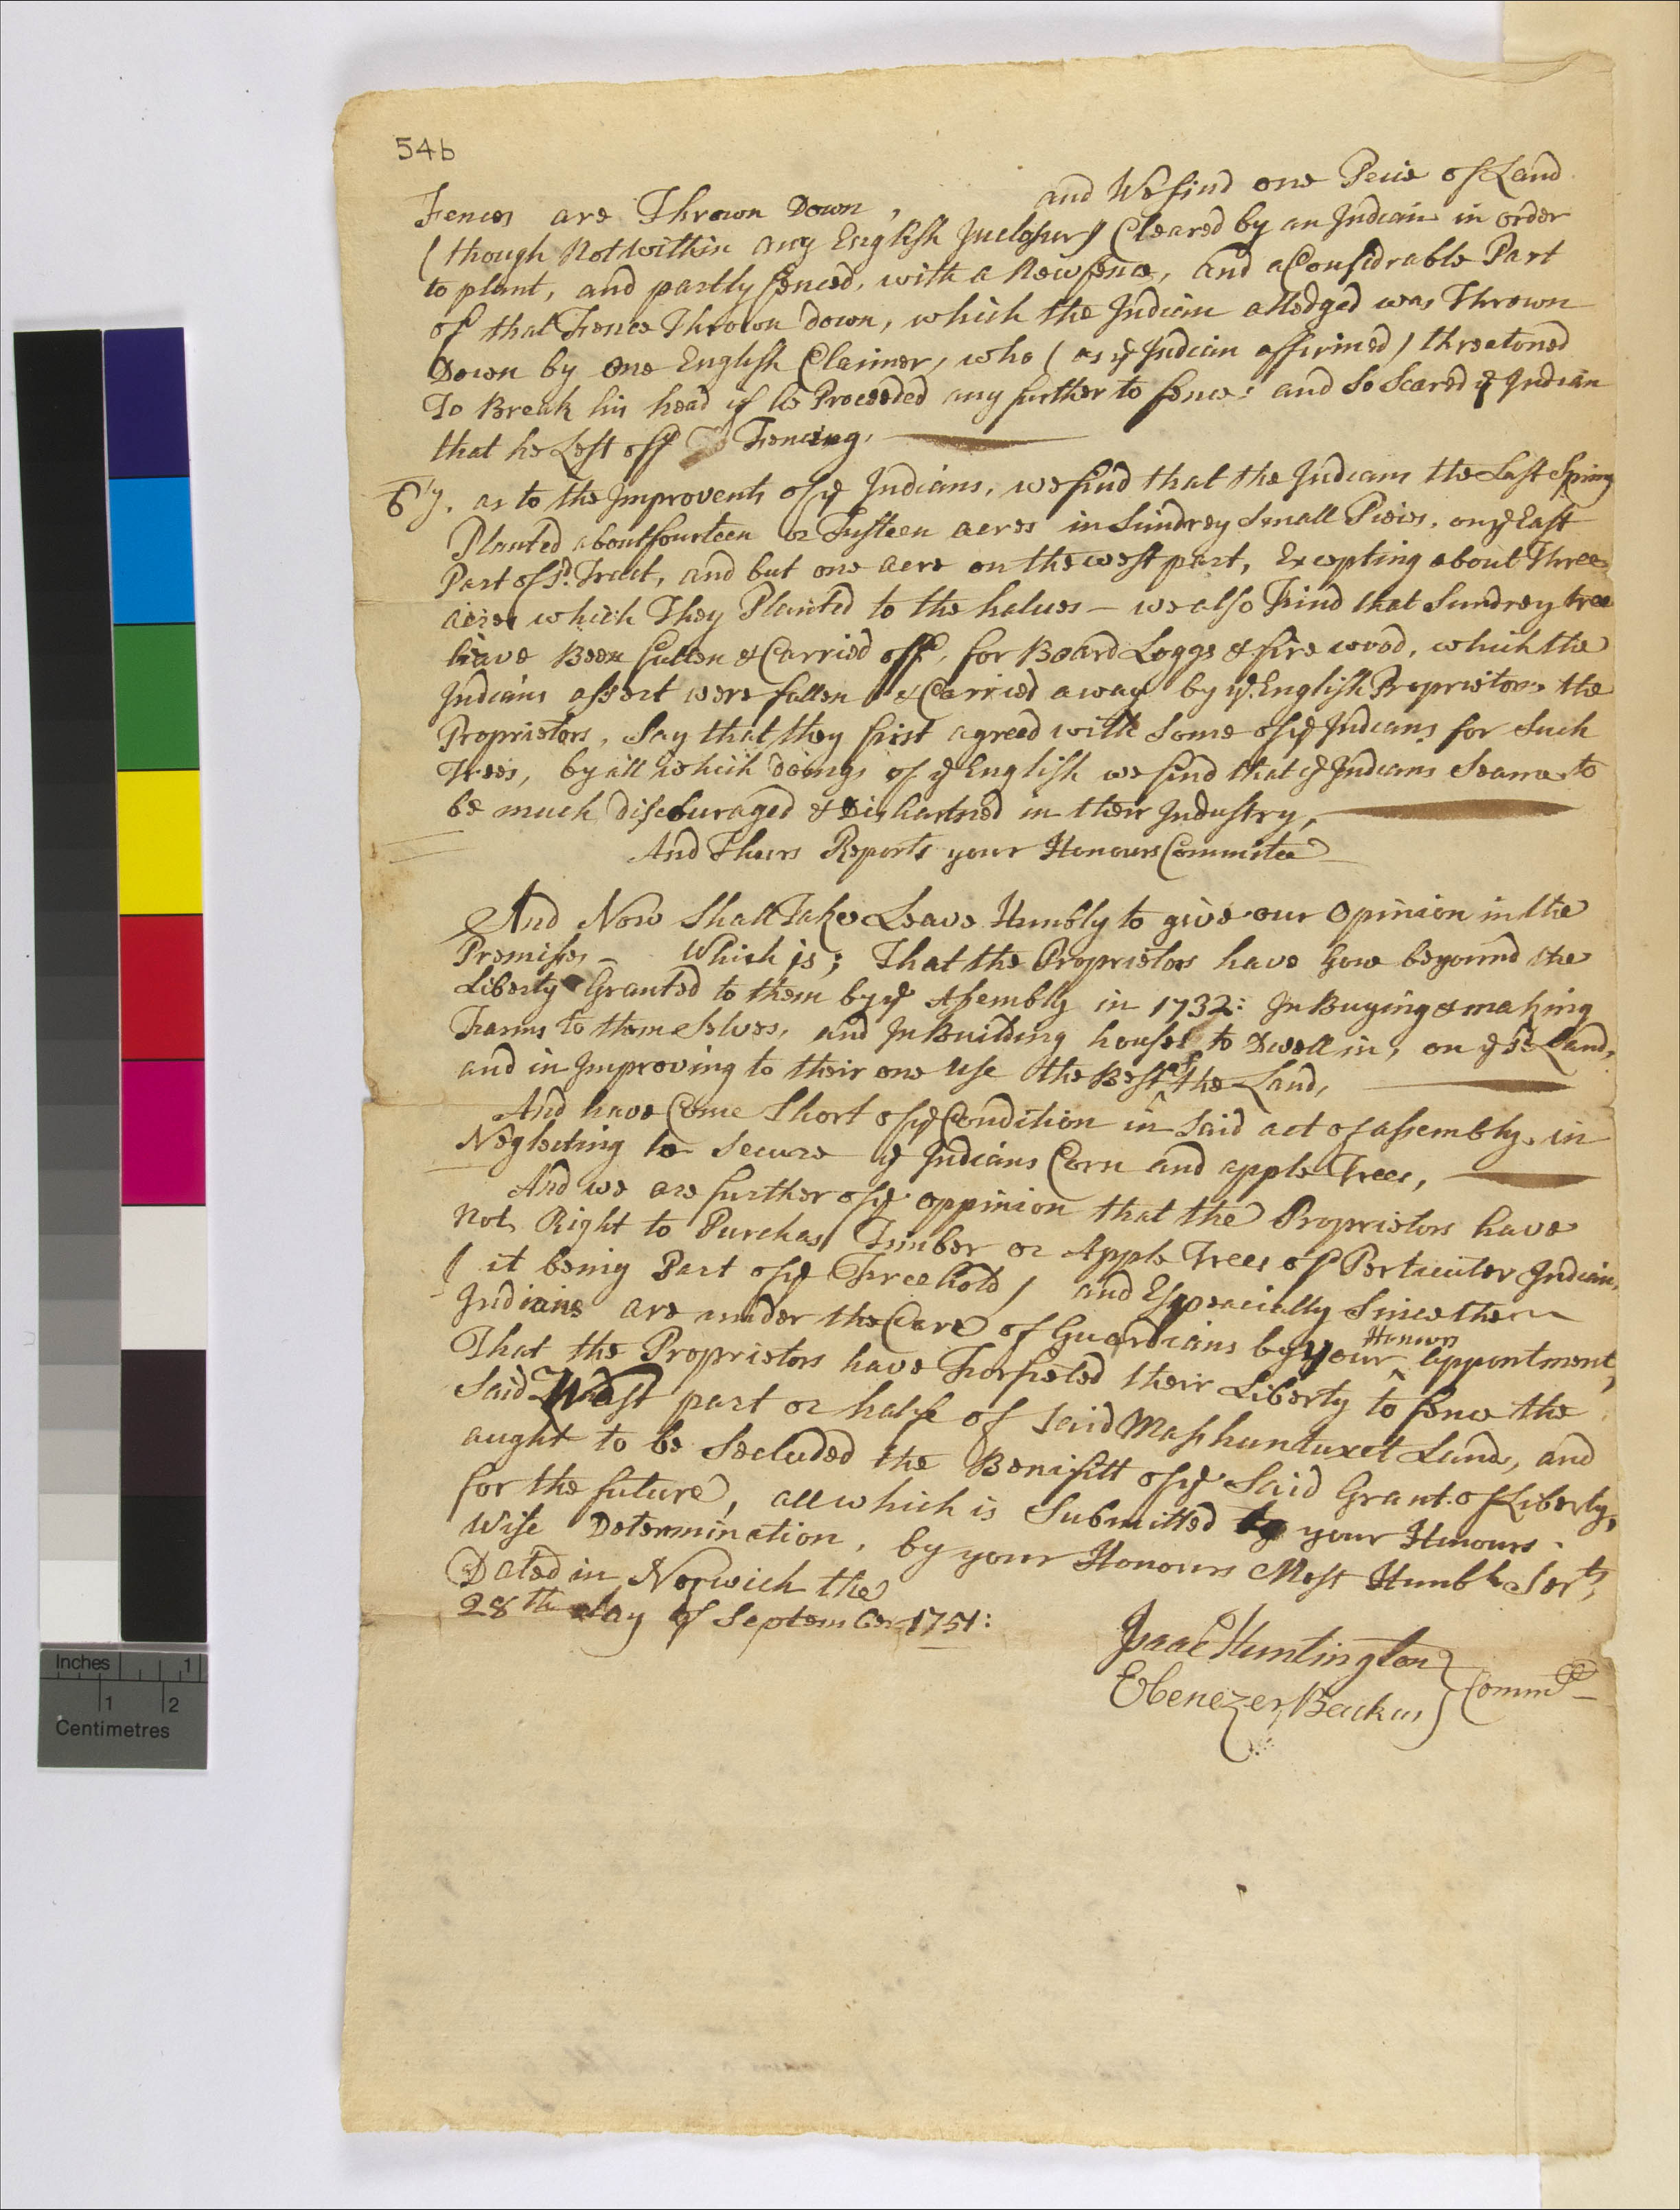 54b
Fences are Thrown Down, and We find one Peice of Land
(though Not within any English Inclosur) Cleared by an Indian in order
to plant, and partly fenced, with a New fence, and a Considrable Part
of that Fence Thrown down, which the Indian alledged was Thrown
Down by one English Claimer, who (as ye Indian affirmed) threatoned
To Break his head if he Proceeded any further to fence: and So Scared ye Indian
that he Left off Fencing.
6ly. as to the Improvents of ye Indians, we find that the Indians the Last Spring
Planted about fourteen or Fifteen acres in Sundrey Small Pieces, on ye East
Part of sd. Tract, and but one acre on the west part, Excepting about Three
acres which They Planted to the halves - we also Find that Sundrey tree
have Been fallen & Carried off, for Board Loggs & fire wood, which the
Indians assert were fallen & Carried away by ye. English Proprietors the
Proprietors, Say that they first agreed with Some of ye Indians for Such
Trees, by all which doings of ye English we find that ye Indians Seame to
be much discouraged & Dishartned in their Industry,
And Thus Reports your Honours Commitee
And Now Shall Take Leave Humbly to give our Opinion in the
Premisses - Which is; That the Proprietors have Gone beyound the
Liberty Granted to them by ye Assembly in 1732: In Buying & making
Farms to themselves, and In Building houses to Dwell in, on ye sd. Land,
and in Improving to their one Use the Best of the Land,
And have Come Short of ye Condition in Said act of assembly, in
Neglecting to Secure ye Indians Corn and apple Trees,
And we are further of ye oppinion that the Proprietors have
Not Right to Purchas Timber or Apple Trees of Perticuler Indian,
(it being Part of ye Freehold) and Espeacially Since the
Indians are under the Care of Guardians by your Honours appontment,
That the Proprietors have Forfieted their Liberty to fence the
Said West part or halfe of said Mashuntuxet Land, and
aught to be Secluded the Benifitt of ye Said Grant of Liberty,
for the future, all which is Submitted to your Honours
Wise Determination, by your Honours Most Humble Servts,
Dated in Norwich the
28th day of September 1751:
Isaac Huntington
Ebenezer Backus } Commtee
Inches 1
1 2
Centimetres